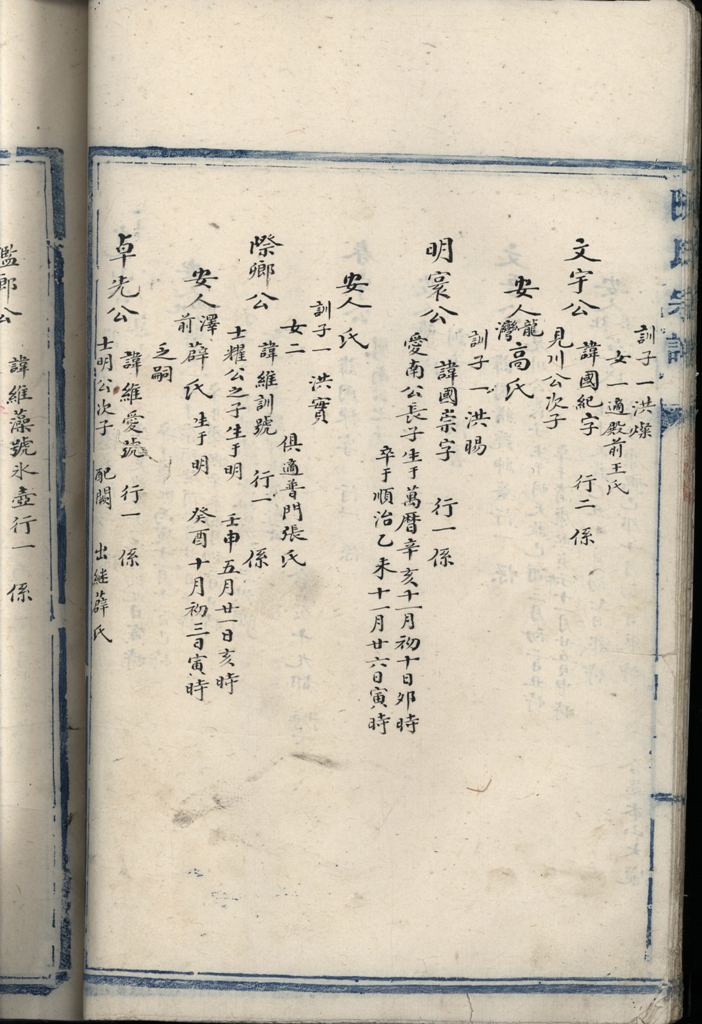 訓子一洪燦
女一適殿前王氏
文宇公 諱國紀字 行二 係
見川公次子
安人龍灣高氏
訓子一洪暘
明寰公 諱國崇字 行一 係
愛南公長子生于萬曆辛亥十一月初十日卯時
卒于順治乙未十一月廿六日寅時
安人 氏
訓子一 洪寶
女二 俱適普門張氏
際鄉公 諱維訓號 行一 係
士耀公之子生于明 壬申五月廿一日亥時
安人澤前薛氏 生于明 癸酉十月初三日寅時
乏嗣
卓光公 諱維愛號 行一 係
士明公次子 配闕 出繼薛氏
鄉公 諱維藻號氷壺行一 係
氏宗譜